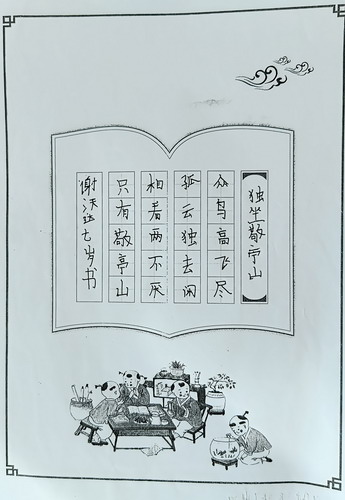 独坐敬亭山
众鸟高飞尽
孤云独去闲
相看两不厌
只有敬亭山
谢沃廷七岁书